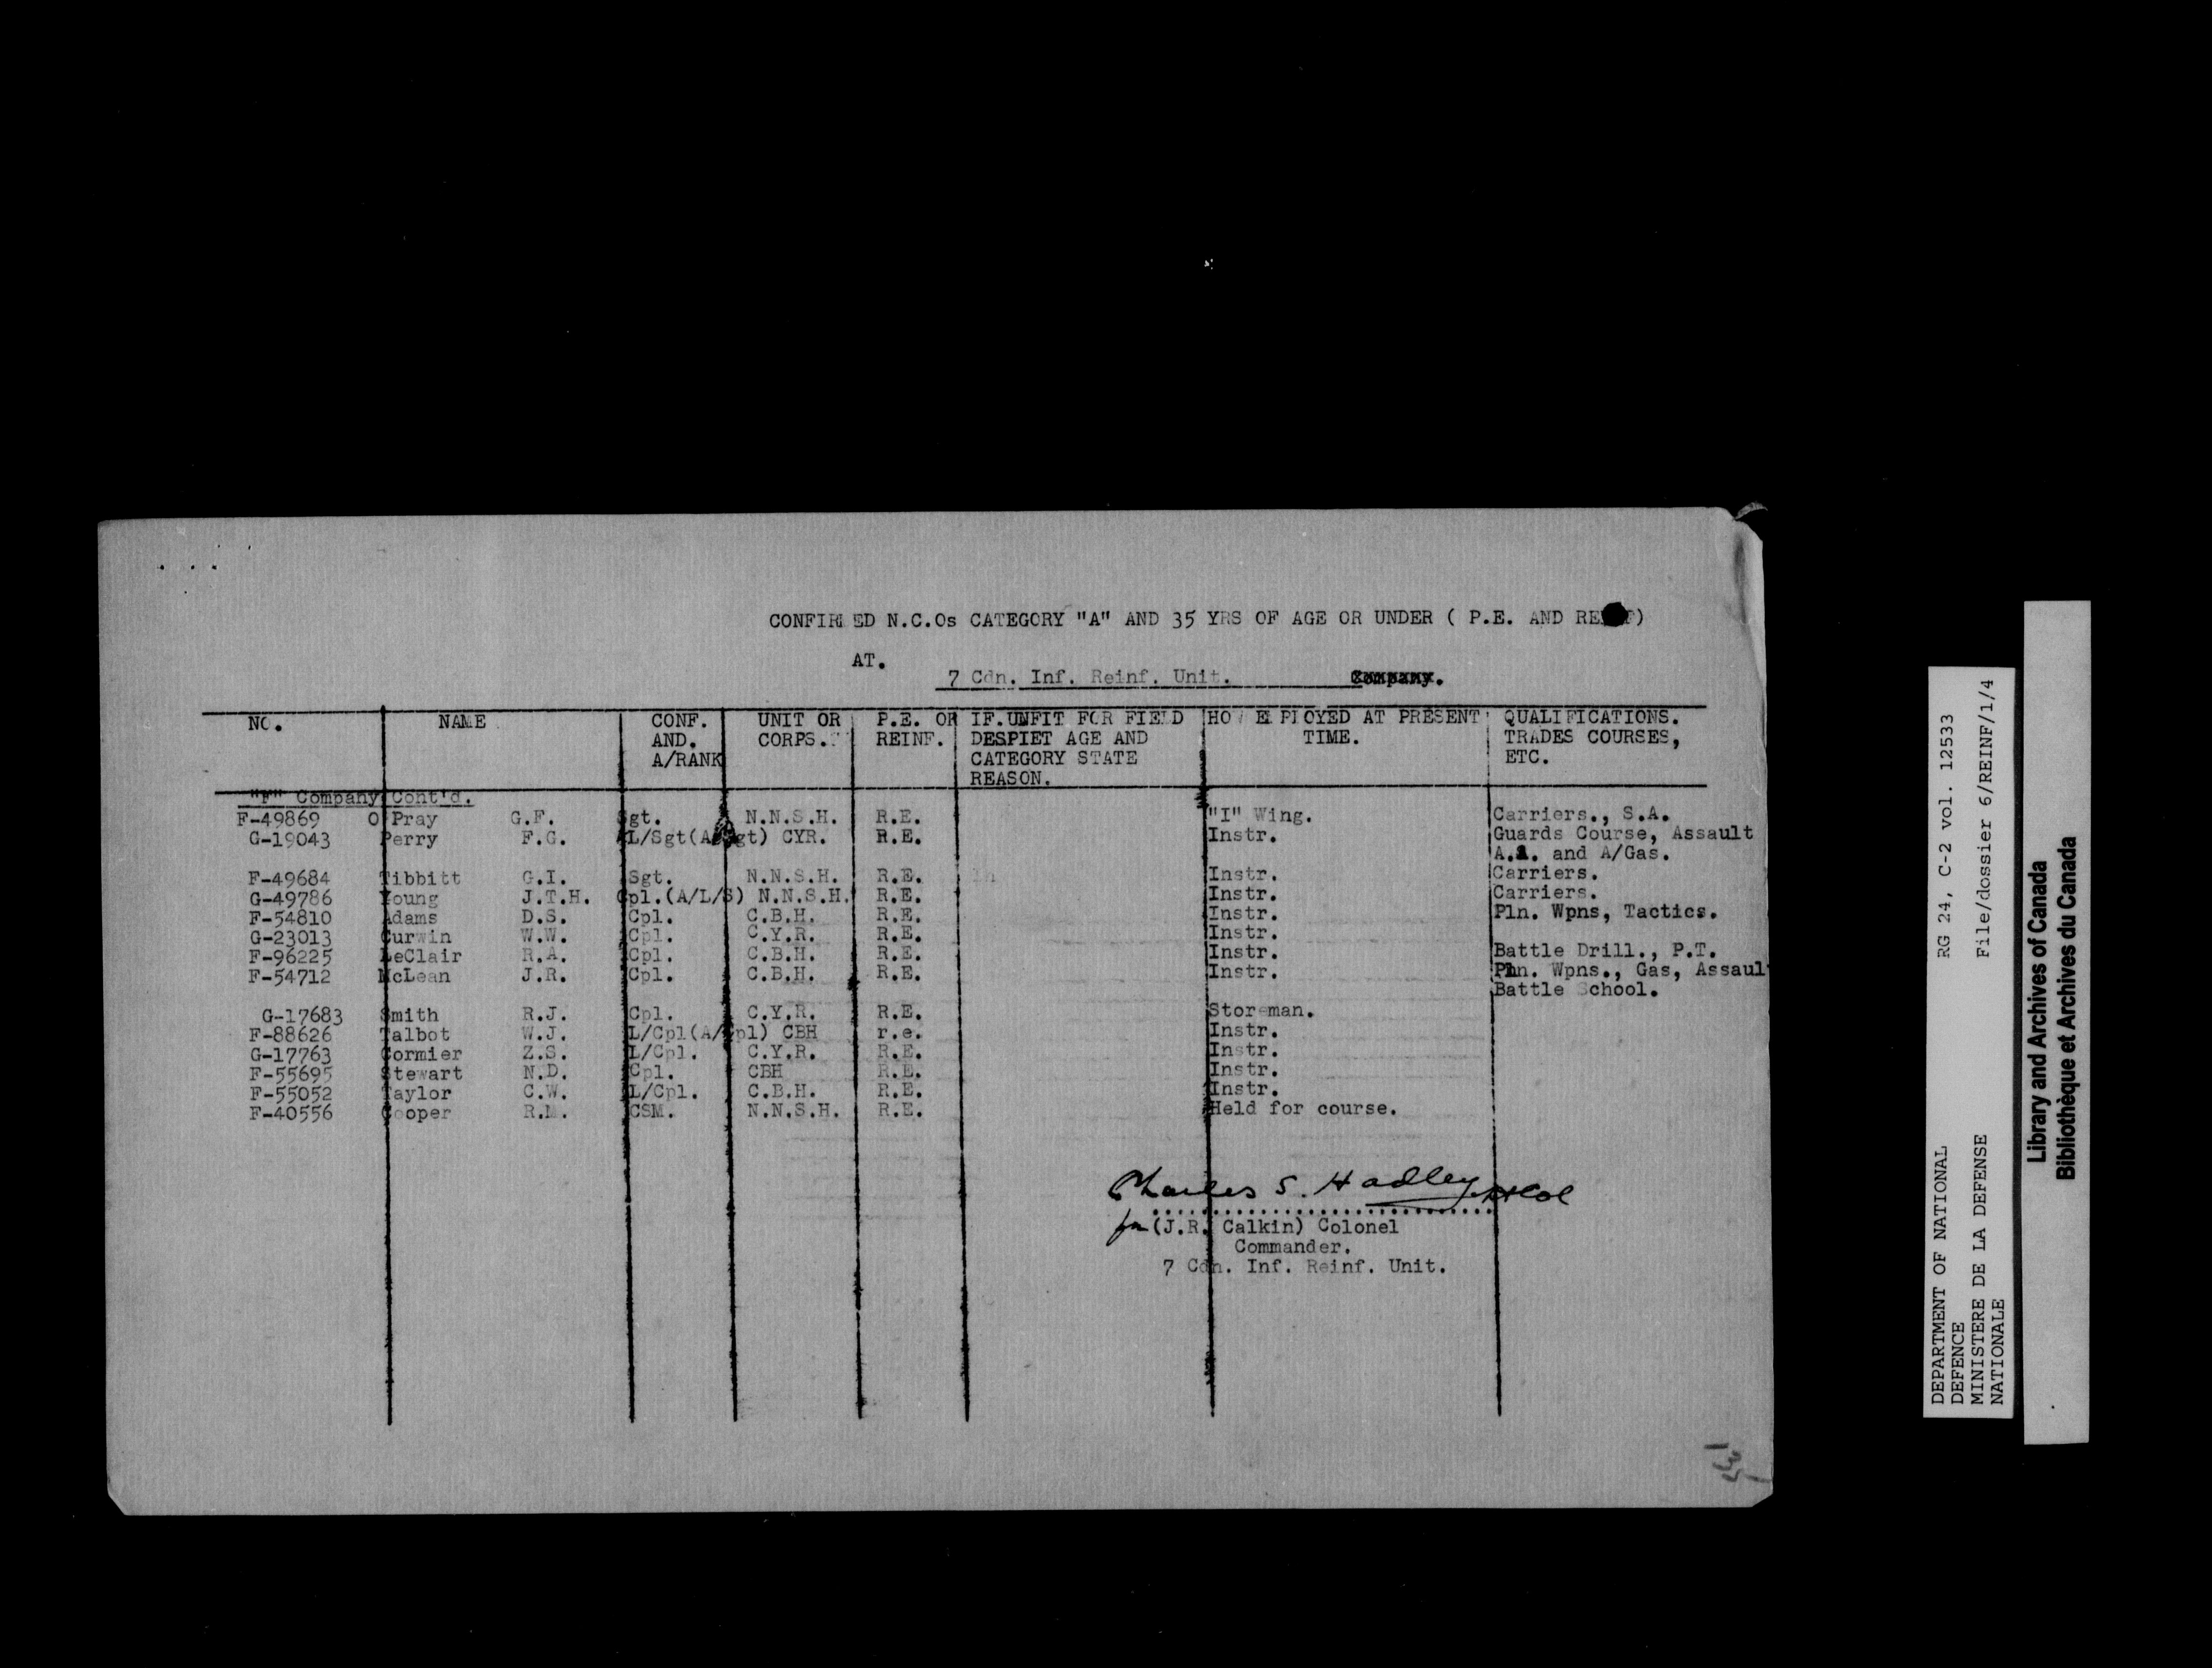 CONFIRMED N.C.Os CATEGORY "A" AND 35 YRS OF AGE OR UNDER ( P.E. AND
AT.
7 Cdn. Inf. Reinf. Unit. Company.
NO. NAME CONF. AND. A/RANK UNIT OR CORPS. P.E. OR REINF. IF.UNFIT FOR FIELD DESPIET AGE AND CATEGORY STATE REASON. HOW EMPLOYED AT PRESENT TIME. QUALIFICATIONS. TRADES COURSES, ETC.
"F" Company Cont'd.
F-49869 O Pray G.F. Sgt. N.N.S.H. R.E. "I" Wing. Carriers., S.A.
G-19043 Perry F.G. L/Sgt(A/Sgt) CYR. R.E. Instr. Guards Course, Assault
and A/Gas.
F-49684 Tibbitt G.I. Sgt. N.N.S.H. R.E. Instr. Carriers.
G-49786 Young J.T.H. Cpl.(A/L/S) N.N.S.H. R.E. Instr. Carriers.
F-54810 Adams D.S. Cpl. C.B.H. R.E. Instr. Pln. Wpns, Tactics.
G-23013 Curwin W.W. Cpl. C.Y.R. R.E. Instr.
F-96225 LeClair R.A. Cpl. C.B.H. R.E. Instr. Battle Drill., P.T.
F-54712 McLean J.R. Cpl. C.B.H. R.E. Instr. Pln. Wpns., Gas, Assaul
Battle School.
G-17683 Smith R.J. Cpl. C.Y.R. R.E. Storeman.
F-88626 Talbot W.J. L/Cpl(A/Cpl) CBH r.e. Instr.
G-17763 Cormier Z.S. L/Cpl. C.Y.R. R.E. Instr.
F-55695 Stewart N.D. Cpl. CBH R.E. Instr.
F-55052 Taylor C.W. L/Cpl. C.B.H. R.E. Instr.
F-40556 Cooper R.M. CSM. N.N.S.H. R.E. Held for course.
Charles S. Hadley
for (J.R. Calkin) Colonel
Commander.
7 Cdn. Inf. Reinf. Unit.
DEPARTMENT OF NATIONAL DEFENCE RG 24, C-2 vol. 12533
MINISTERE DE LA DEFENSE NATIONALE File/dossier 6/REINF/1/4
Library and Archives of Canada
Bibliothèque et Archives du Canada